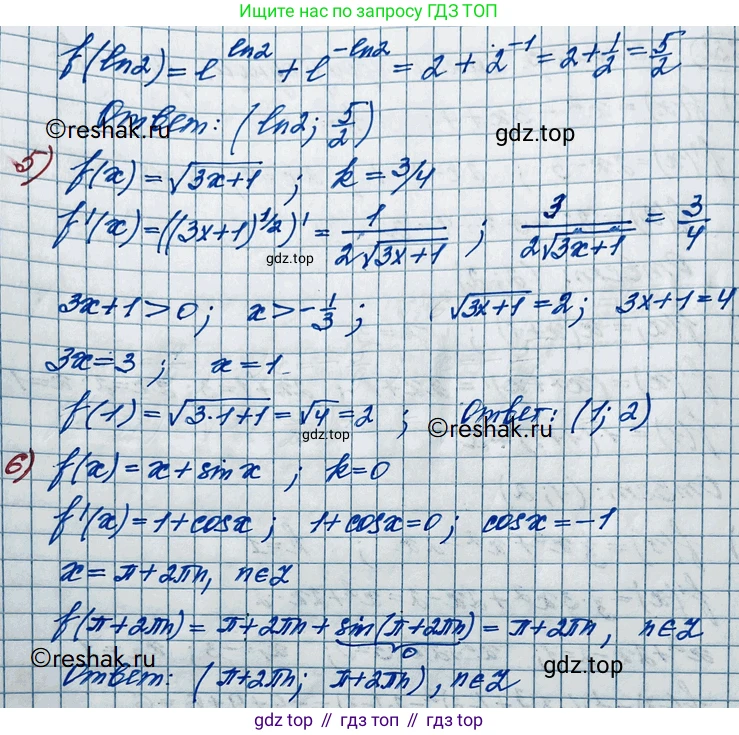 Ищите нас по запросу ГДЗ ТОП
f(ln2) = e^ln2 + e^-ln2 = 2 + 2^-1 = 2 + 1/2 = 5/2
Ответ: (ln2; 5/2)
©reshak.ru
gdz.top
5) f(x) = √(3x+1) ; k = 3/4
f'(x) = ((3x+1)^1/2)' = 1/(2√(3x+1)) ; 3/(2√(3x+1)) = 3/4
gdz.top
3x+1 > 0; x > -1/3 ; √(3x+1) = 2; 3x+1 = 4
3x = 3 ; x = 1
f(1) = √(3·1+1) = √4 = 2 ; Ответ: (1; 2)
gdz.top
©reshak.ru
6) f(x) = x + sin x ; k = 0
f'(x) = 1 + cosx ; 1 + cosx = 0 ; cosx = -1
x = π + 2πn, n∈Z
f(π+2πn) = π + 2πn + sin(π+2πn) = π + 2πn, n∈Z
0
©reshak.ru
gdz.top
Ответ: (π+2πn; π+2πn), n∈Z
gdz.top // гдз топ // gdz.top